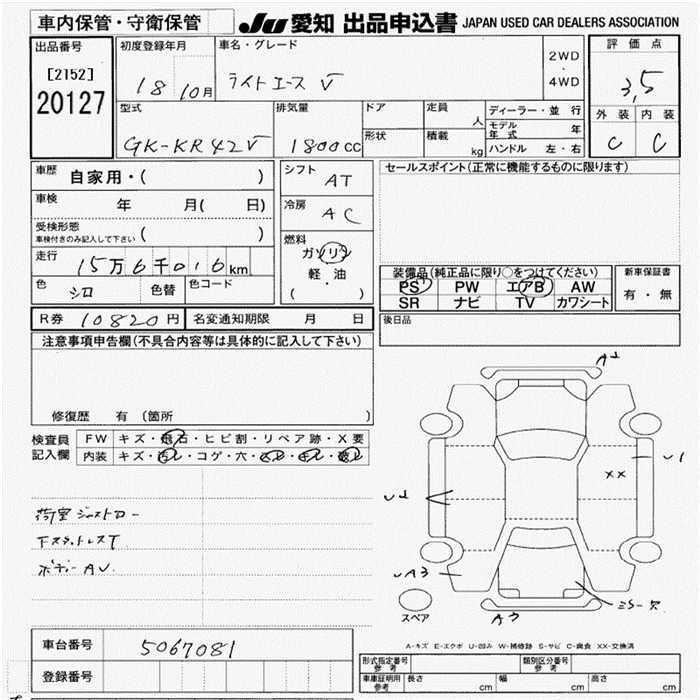 車内保管・守衛保管
JU 愛知 出品申込書 JAPAN USED CAR DEALERS ASSOCIATION
出品番号
[2152]
20127
初度登録年月
18 10月
車名・グレード
ライトエース V
2WD
・
4WD
評価点
3,5
外装 内装
C C
型式
GK-KR42V
排気量
1800cc
ドア
形状
定員 人
積載 kg
ディーラー・並行
モデル年式 年
ハンドル 左・右
車歴 自家用・( )
車検 年 月( 日)
受検形態
車検付きのみ記入して下さい ( )
走行
15万6千016km
色 シロ 色替 色コード
シフト
AT
冷房
AC
燃料
ガソリン
軽・油
( ・ )
セールスポイント(正常に機能するものに限ります)
装備品(純正品に限り○をつけてください)
PS PW エアB AW
SR ナビ TV カワシート
新車保証書
有・無
後日品
R券 10820円 名変通知期限 月 日
注意事項申告欄(不具合内容等は具体的に記入して下さい)
修復歴 有(箇所 )
検査員
記入欄
FW キズ・飛石・ヒビ割・リペア跡・X要
内装 キズ・汚レ・コゲ・穴
A2
U1
XX
U2
UA3
A3
スペア
A-キズ E-エクボ U-凹み W-補修跡 S-サビ C-腐食 XX-交換済
車台番号 5067081
登録番号
形式指定番号
参考
類別区分番号
参考
車庫証明用
参考
長さ cm 幅 cm 高さ cm